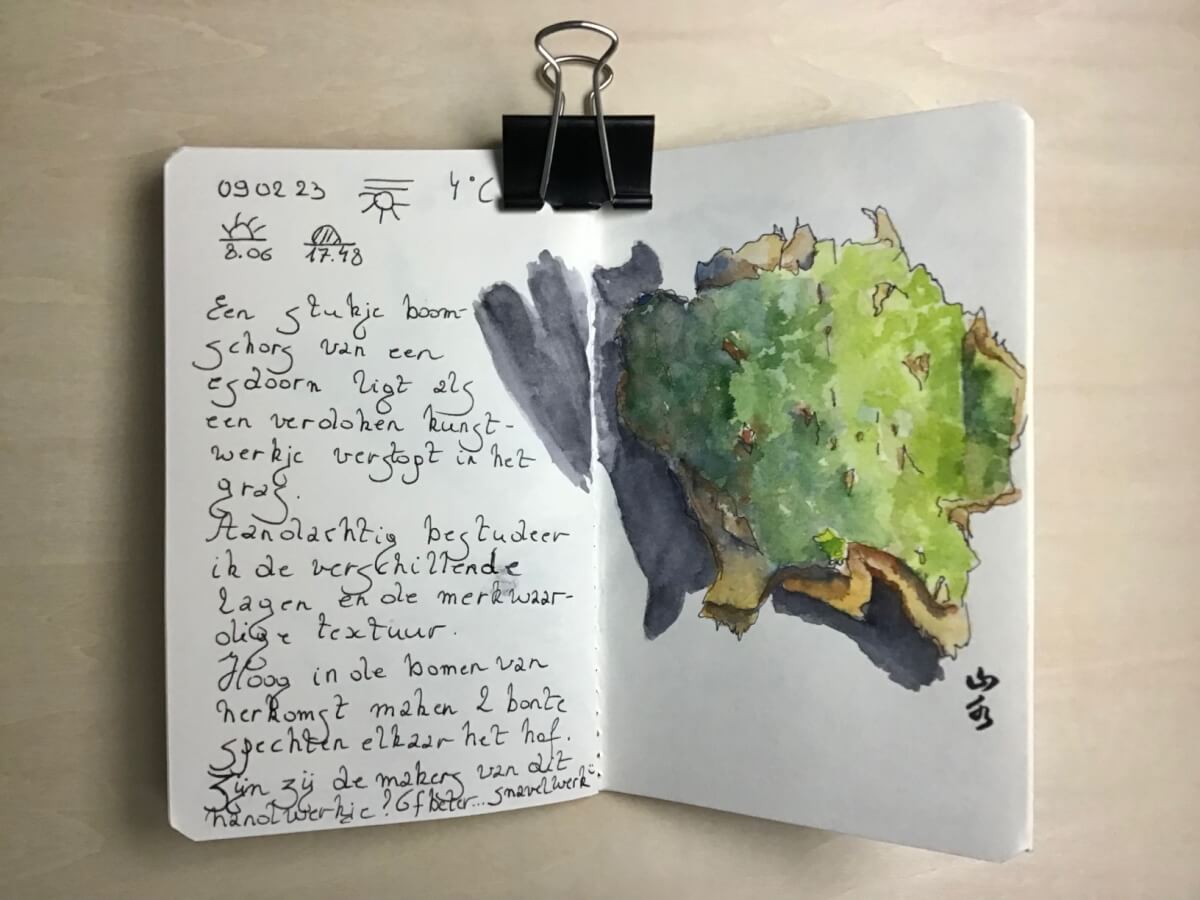 09 02 23 4°C
8.06 17.48
Een stukje boom-
schors van een
esdoorn ligt als
een verdoken kunst-
werkje verstopt in het
gras.
Aandachtig bestudeer
ik de verschillende
lagen en de merkwaar-
dige textuur.
Hoog in de bomen van
herkomst maken 2 bonte
spechten elkaar het hof.
Zijn zij de makers van dit
handwerkje? Of beter... snavelwerk
山
水